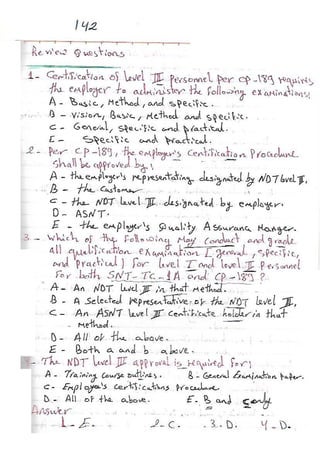 142
Review Questions
1- Certification of Level III personnel per CP-189 requires
the employer to administer the following examinations:
A- Basic, Method, and specific.
B- vision, Basic, Method and specific.
C- General, specific and practical.
E- Specific and practical.
2- Per CP-189, the employer's Certification Procedure
shall be approved by:
A- the employer's representating designated by NDT level III.
B- the customer
C- the NDT level III designated by employer.
D- ASNT.
E- the employer's Quality Assurance Manger.
3- Which of the following May conduct and grade
all qualification examination (general, specific,
and practical) for level I and level II personnel
for both SNT-TC-1A and CP-189?
A- An NDT level III in that method.
B- A Selected representative of the NDT level III,
C- An ASNT level III certificate holder in that
method.
D- All of the above.
E- Both a and b above.
- The NDT level III approval is required for:
A- Training course outlines. B- General Examination Paper.
C- Employee's certifications procedure
D- All of the above. E. B and C only
Answer
1-E. 2-C. 3.D. 4-D.